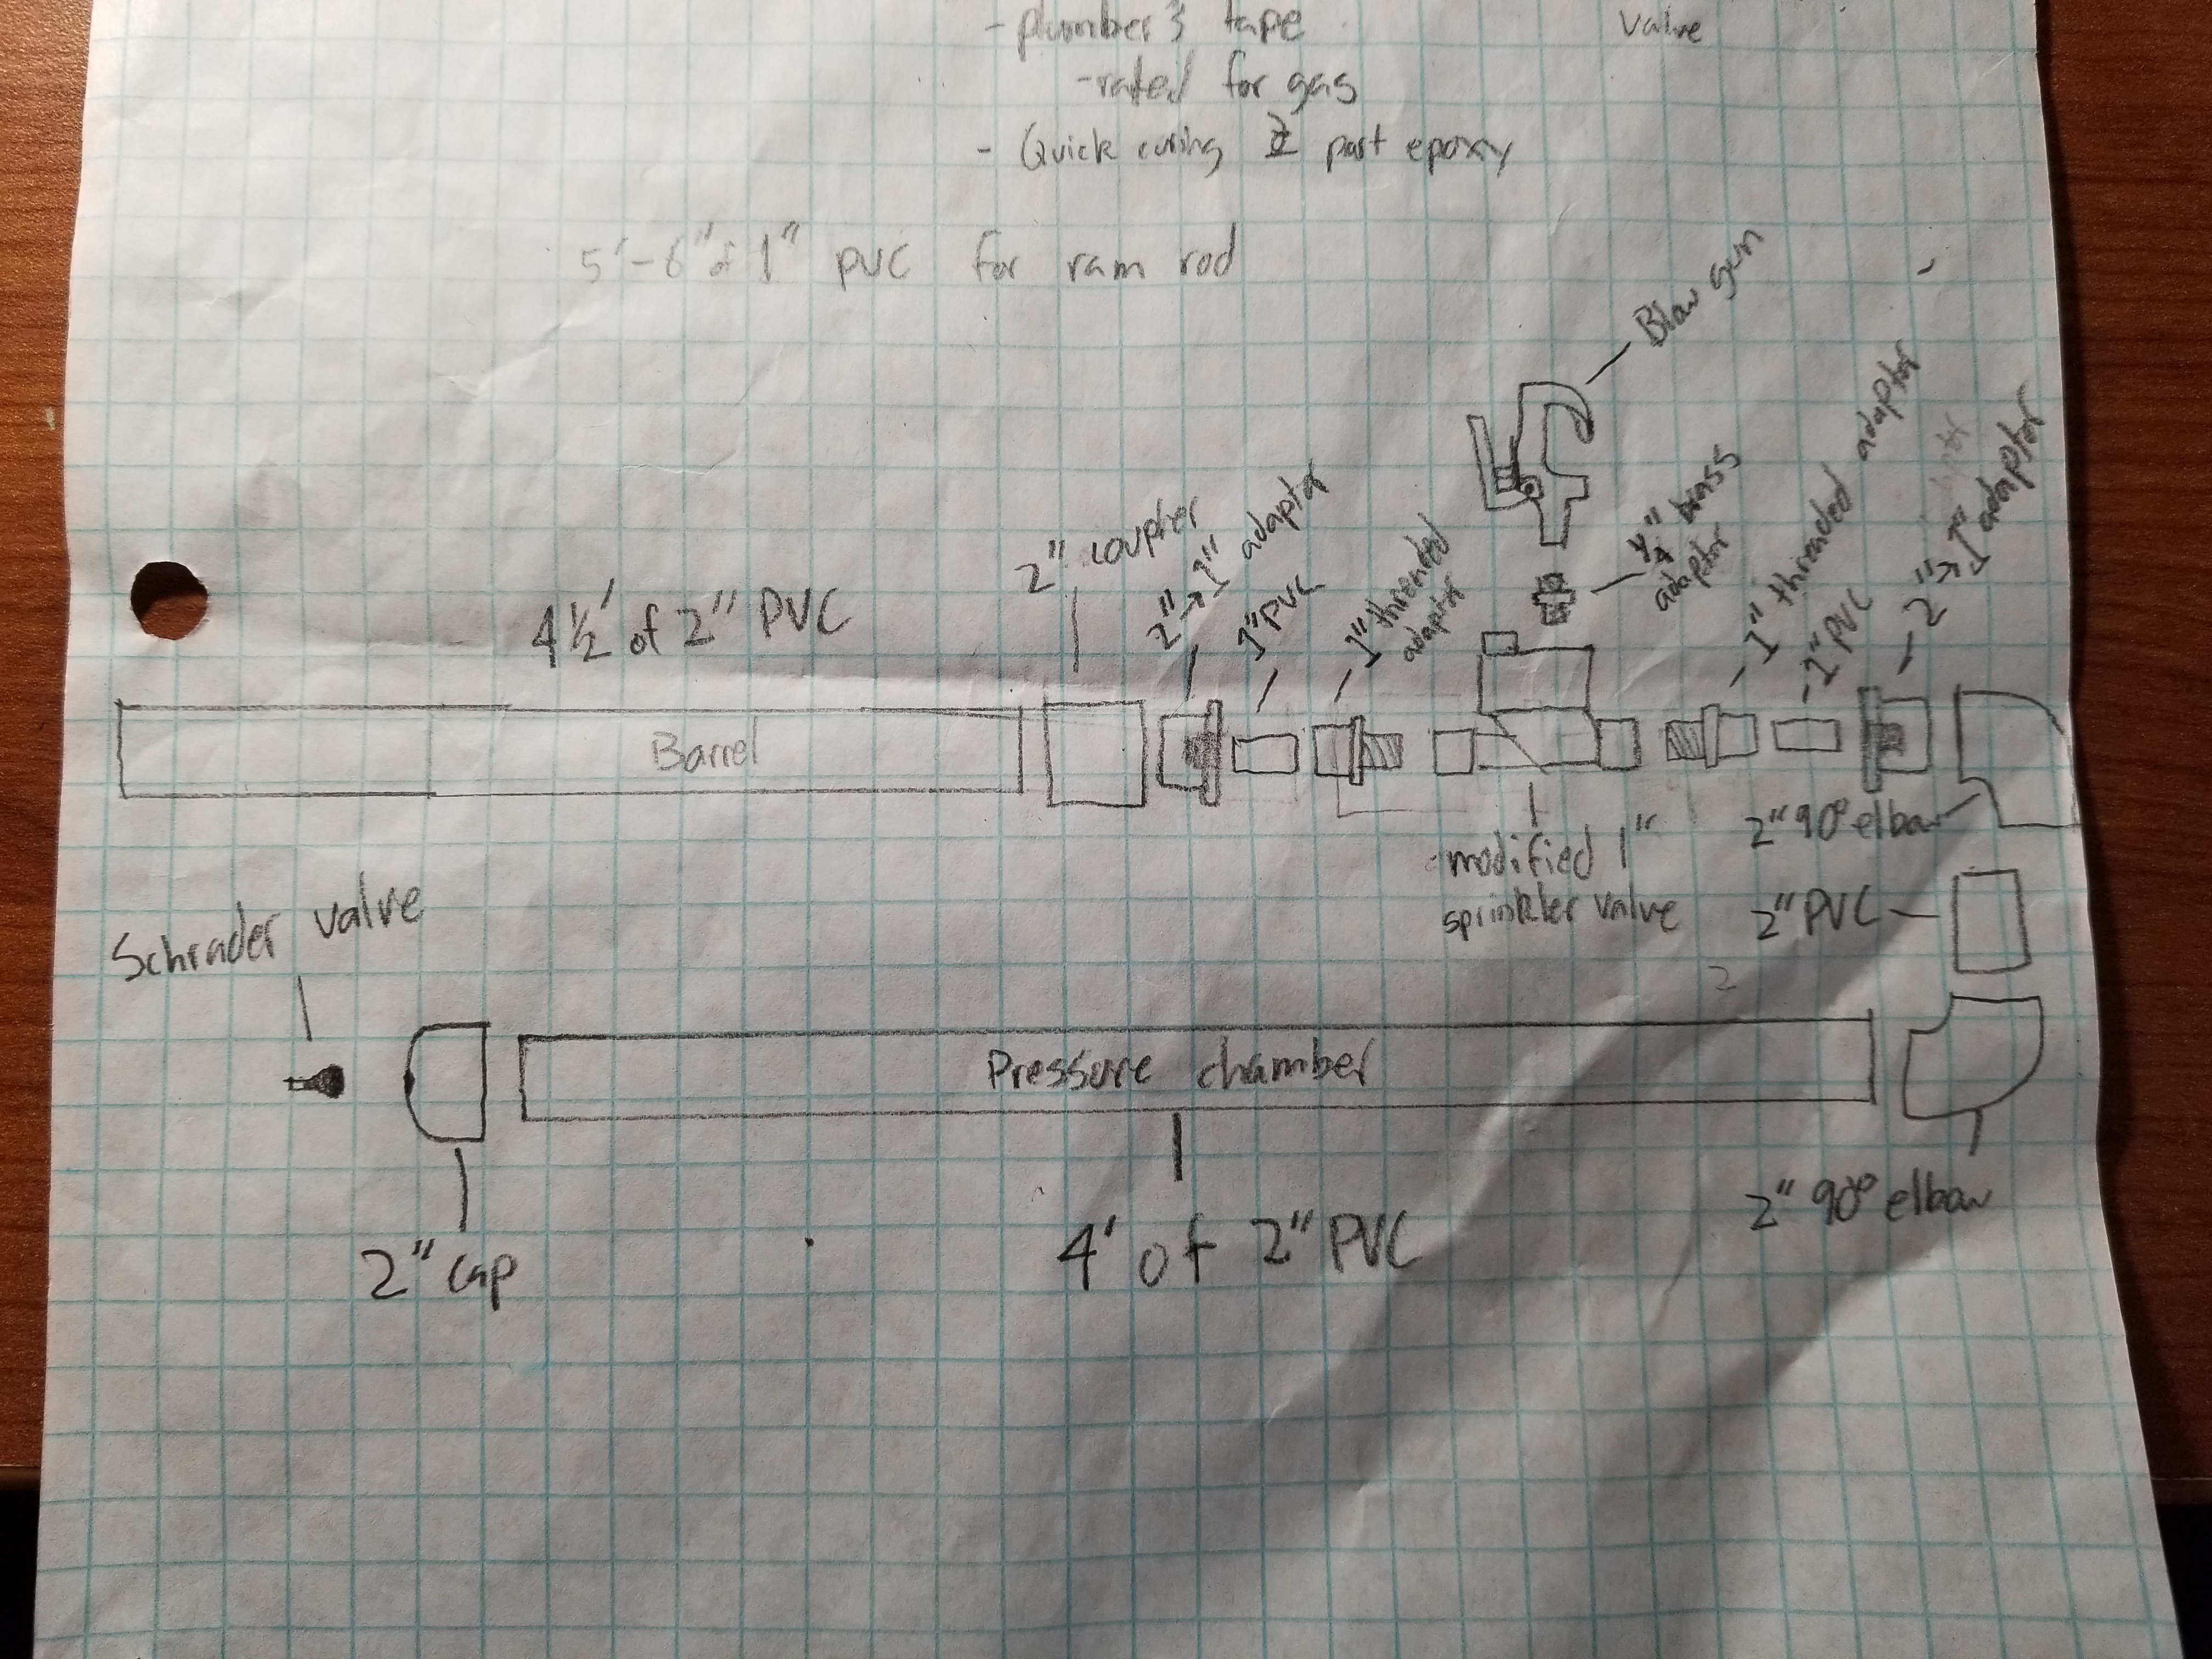 - plumber's tape
valve
- rated for gas
- Quick curing 2 part epoxy
5'-6" of 1" PVC for ram rod
Blow gun
1/4" brass
adaptor
1" threaded adaptor
2"→1" adaptor
2" coupler
2"→1" adaptor
1" PVC
1" threaded
adaptor
1" PVC
4 1/2' of 2" PVC
Barrel
modified 1"
sprinkler valve
2" 90° elbow
2" PVC
2
Schrader valve
Pressure chamber
2" cap
4' of 2" PVC
2" 90° elbow